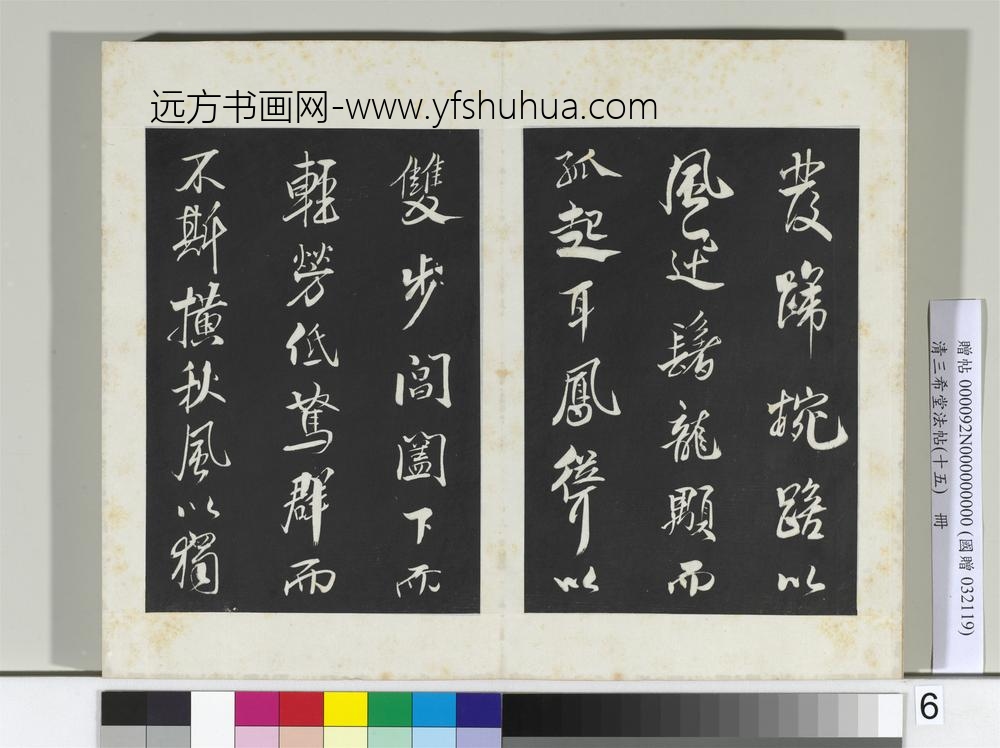 远方书画网-www.yfshuhua.com
發蹄椀踣以
風迅鬐龍顒而
孤起耳鳳聳以
雙步閶闔下而
輕勞低駑群而
不斯橫秋風以獨
贈帖 000092N000000000 (國贈 032119)
清三希堂法帖(十五) 冊
6